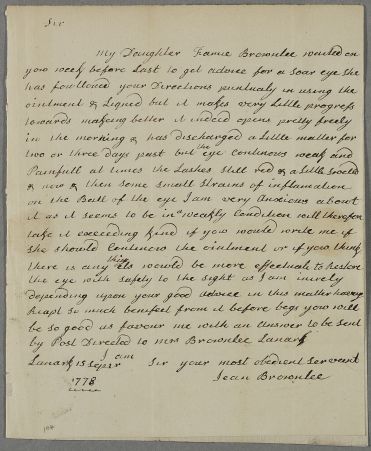 Sir
My Daughter Jamie Brownlee waited on
yow week before Last to get advice for a Soar eye She
has fowllowed your Directions puntualy in using the
ointment & Liqued but it makes very Little progress
towards making better it indeed opens pretty freely
in the morning & has discharged a Little matter for
two or three days past but the eye continows weak and
Painfull at times the Lashes still red & a Little Swelled
& now & then some small strains of inflamation
on the Ball of the eye I am very Anxious about
it as it seems to be in a weakly Condition will therefore
take it exeeeding kind if yow would write me if
She should Continow the ointment or if yow think
there is any thing els would be more effectuale to Restore
the eye with safety to the sight as I am intirely
depending upon your good advice in this matter having
Reapt so much benifeet from it before begs yow will
be so good as favour me with an Answer to be sent
by Post Directed to Mrs Brownlee Lanark
I am
Lanark 15 Sepr Sir your most obedient Servant
1778 Jean Brownlee